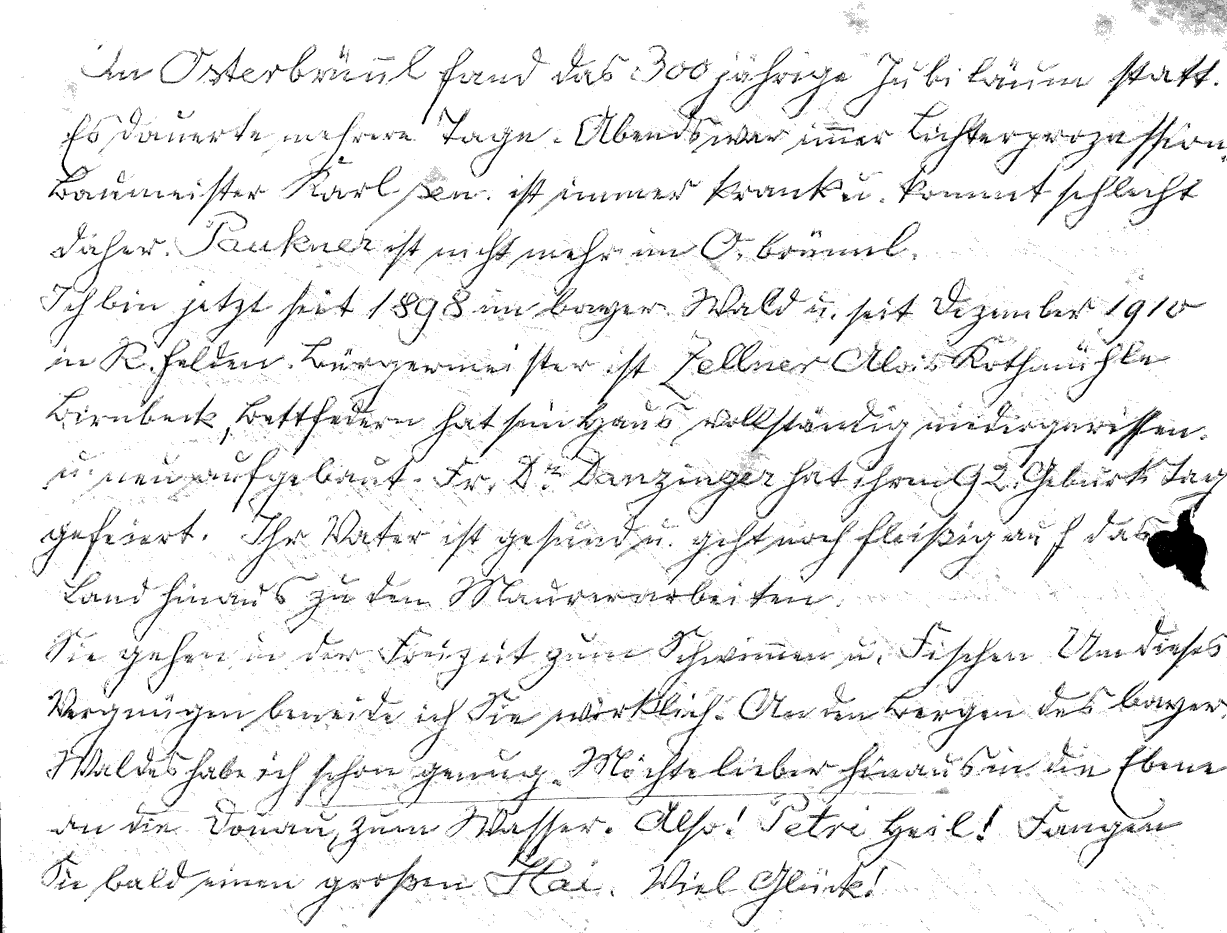 In Osterbrünnl fand das 300 jährige Jubiläum statt.
Es dauerte mehrere Tage. Abends war im̄er Lichterprozession.
Baumeister Karl sen. ist immer krank u. kommt schlecht
daher. Paukner ist nicht mehr in O. brünnl.
Ich bin jetzt seit 1898 im bayer. Wald u. seit Dezember 1910
in R. Bürgermeister ist Zellner Alois Rothmühle
Birnbeck, Bettfedern hat sein Haus vollständig niedergerissen.
u. neu aufgebaut. Fr. Dr. Danzinger hat ihren 92. Geburts Tag
gefeiert. Ihr Vater ist gesund u. geht noch fleißig auf das
Land hinaus zu den Maurerarbeiten.
Sie gehen in der Freizeit zum Schwim̄en u. Fischen Um dieses
Vergnügen beneide ich Sie wirklich. An den Bergen des bayer.
Waldes habe ich schon genug. Möchte lieber hinaus in die Ebene
an die Donau, zum Wasser. Also! Petri Heil! Fangen
Sie bald einen großen Hai. Viel Glück!